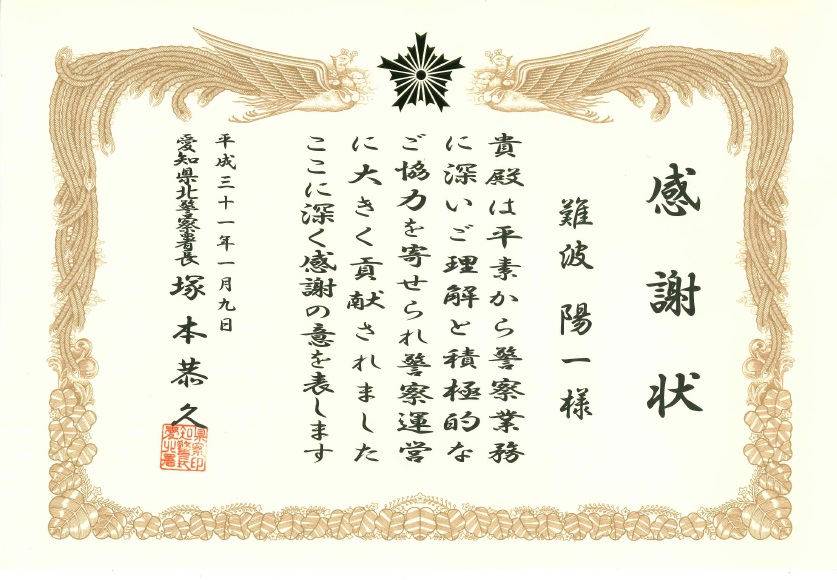 感謝状
難波 陽一様
貴殿は平素から警察業務
に深いご理解と積極的な
ご協力を寄せられ警察運営
に大きく貢献されました
ここに深く感謝の意を表します
平成三十一年一月九日
愛知県北警察署長 塚本恭久